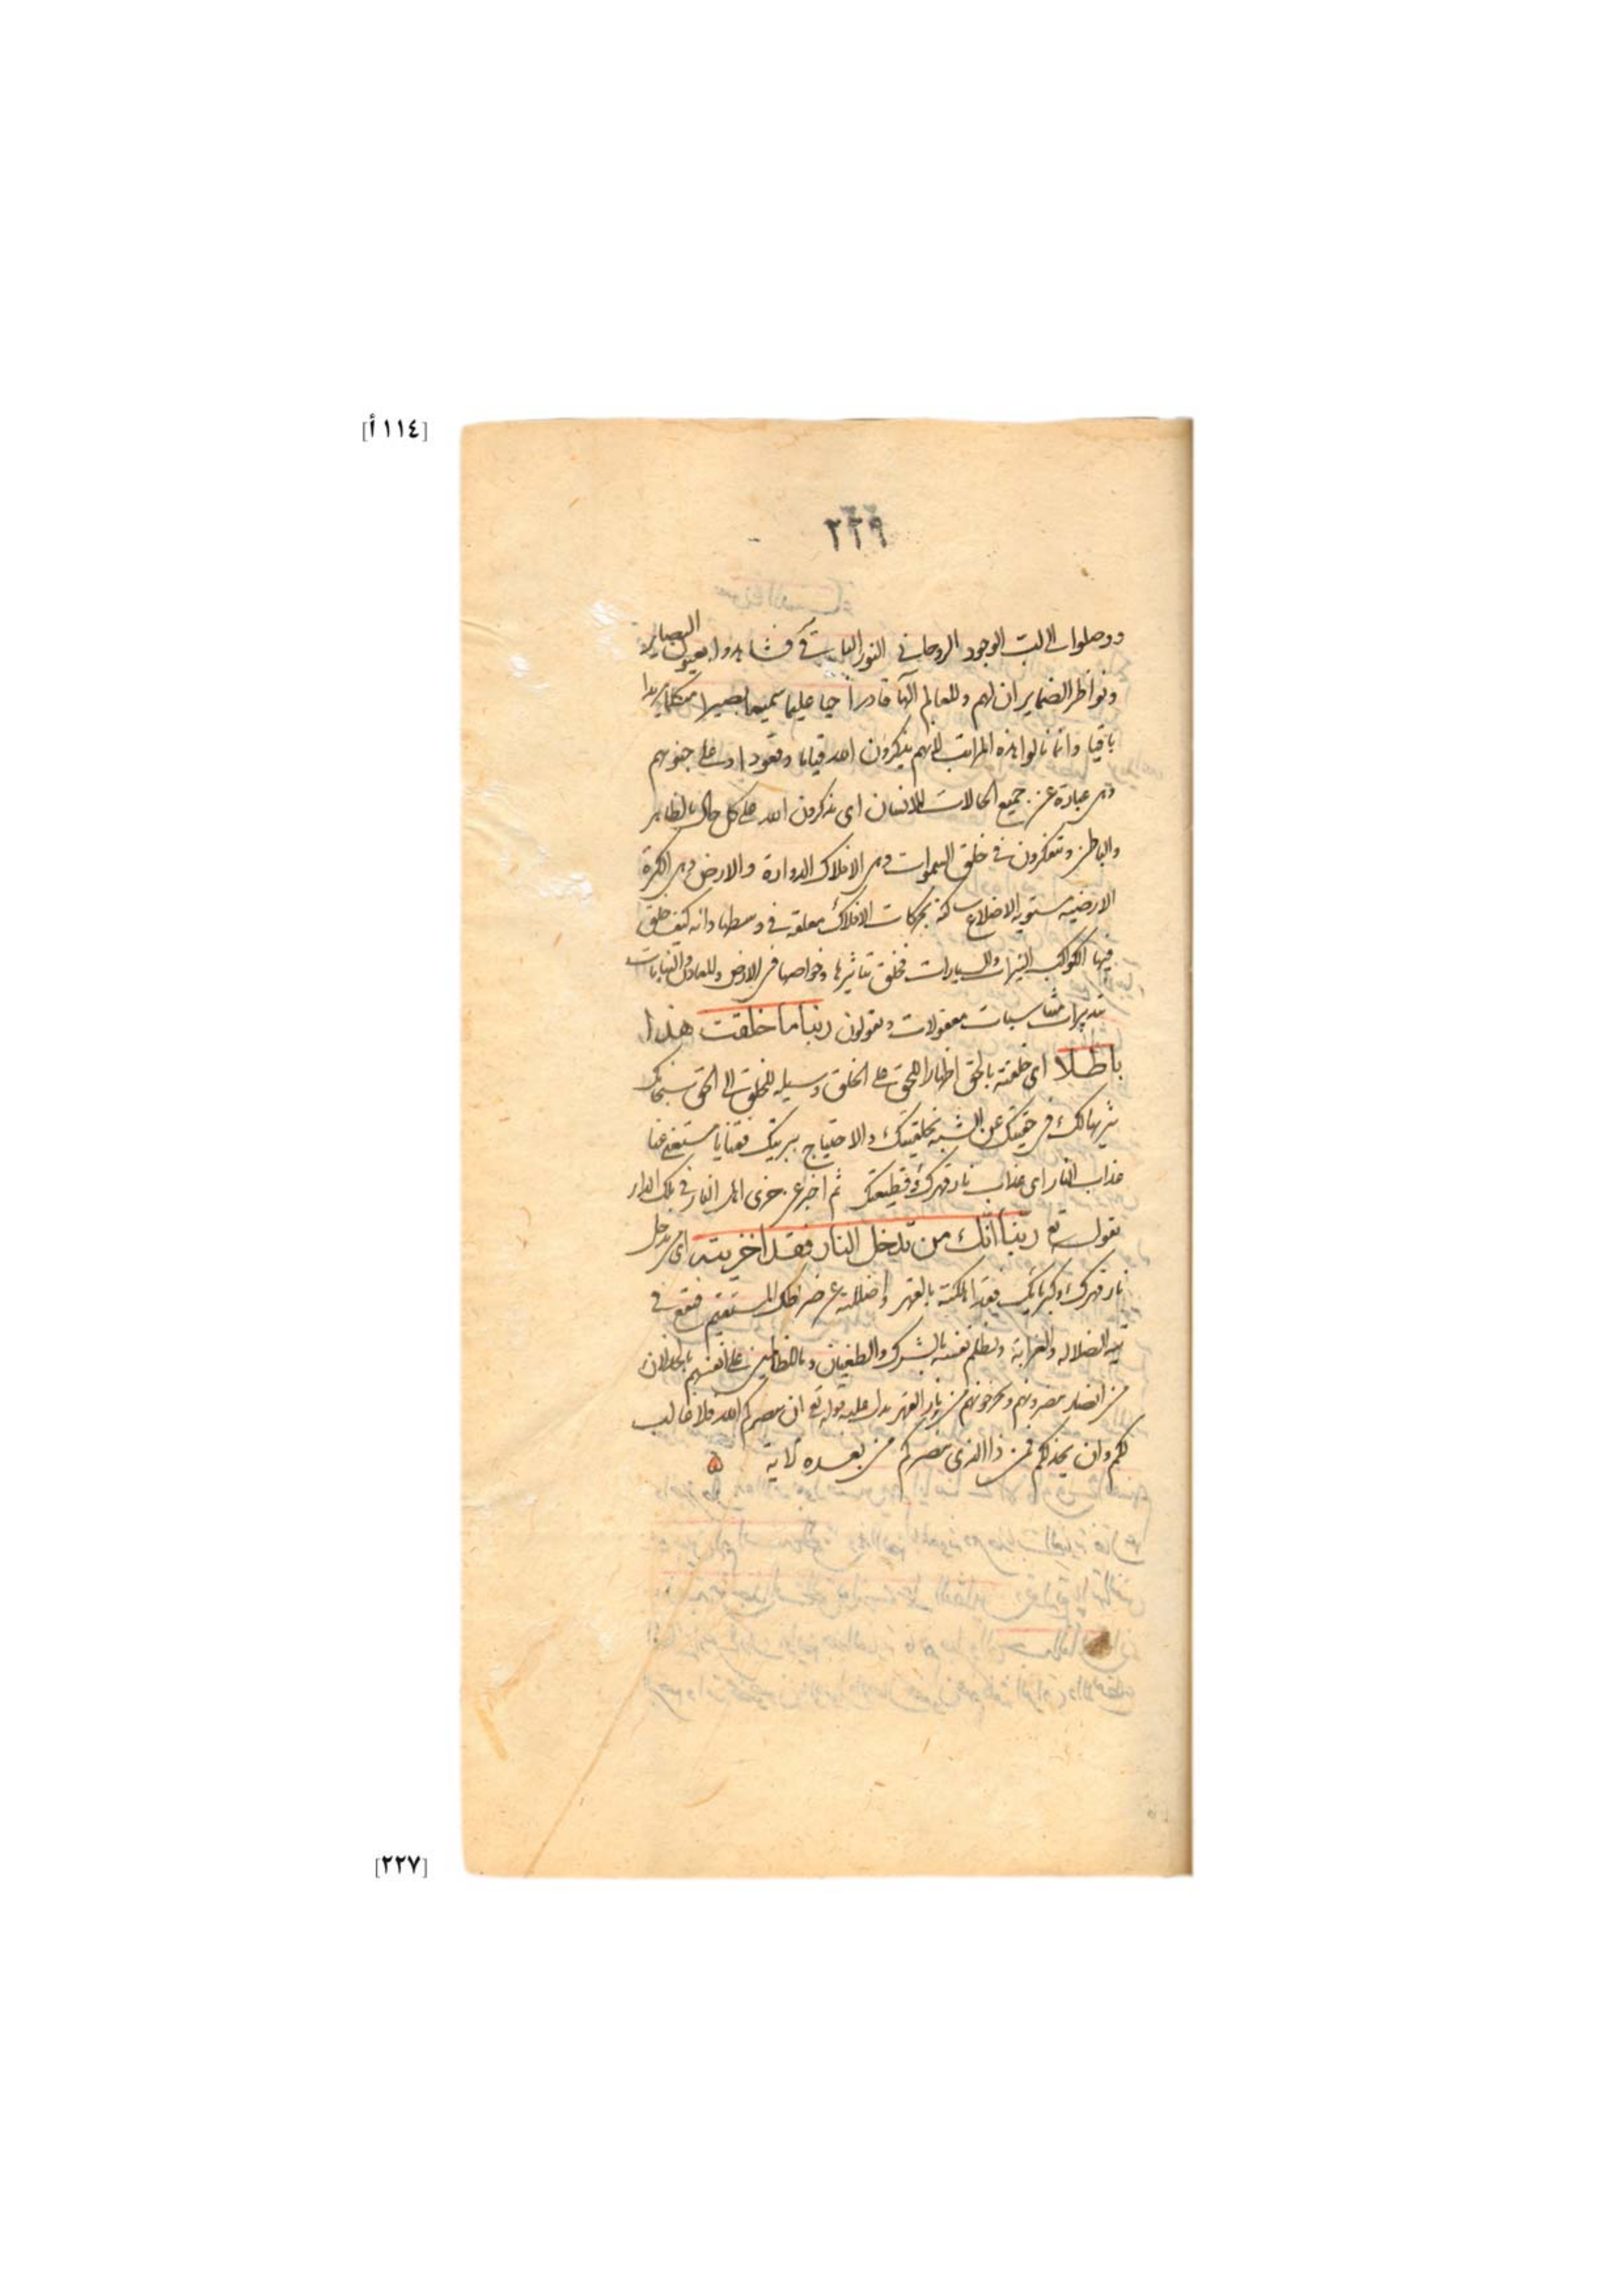 [١١٤أ]
٢٢٩
ووصلوا الى لب الوجود الروحاني النور الباقي فشاهدوا بعيون البصاير
ونواظر الضماير ان لهم وللعالم الها قادرا حيا عليما سميعا بصيرا متكلما مريدا
باقيا وانما نالوا هذه المراتب لانهم يذكرون الله قياما وقعودا وعلى جنوبهم
وهي عبارة عن جميع الحالات للانسان اى يذكرون الله على كل حال بالظاهر
والباطن ويتفكرون في خلق السموات وهي الافلاك الدوارة والارض وهي الكرة
الارضية مستوية الاضلاع ساكنة بحركات الافلاك معلقة في وسطها وانه كيف خلق
فيها الكواكب النيرات والسيارات فخلق تاثيرها وخواصها في الارض وللمعادن والنباتات
تدبيرات مناسبات معقولات ويقولون ربنا ما خلقت هذا
باطلا اى خلقته بالحق اظهارا للحق على الخلق وسيلة للخلق الى الحق سبحانك
تنزيها لك في حقيتك عن الشبه بخلقيتك والاحتياج ببريتك فقنا يا مستغنى عنا
عذاب النار اى عذاب نار قهرك وقطيعتك ثم اخبر عن خزى اهل النار في تلك الدار
بقوله تع ربنا انك من تدخل النار فقد اخزيته اى من تدخل
نار قهرك وكبريائك فقد اهلكته بالقهر واضللته عن صراطك المستقيم فيقع في
تيه الضلالة والغواية ويظلم نفسه بالشرك والطغيان وما للظالمين على انفسهم بالخذلان
من انصار ينصرونهم ويخرجونهم من نار القهر يدل عليه قوله تع ان ينصركم الله فلا غالب
لكم وان يخذلكم فمن ذا الذى ينصركم من بعده لاية
[٢٢٧]